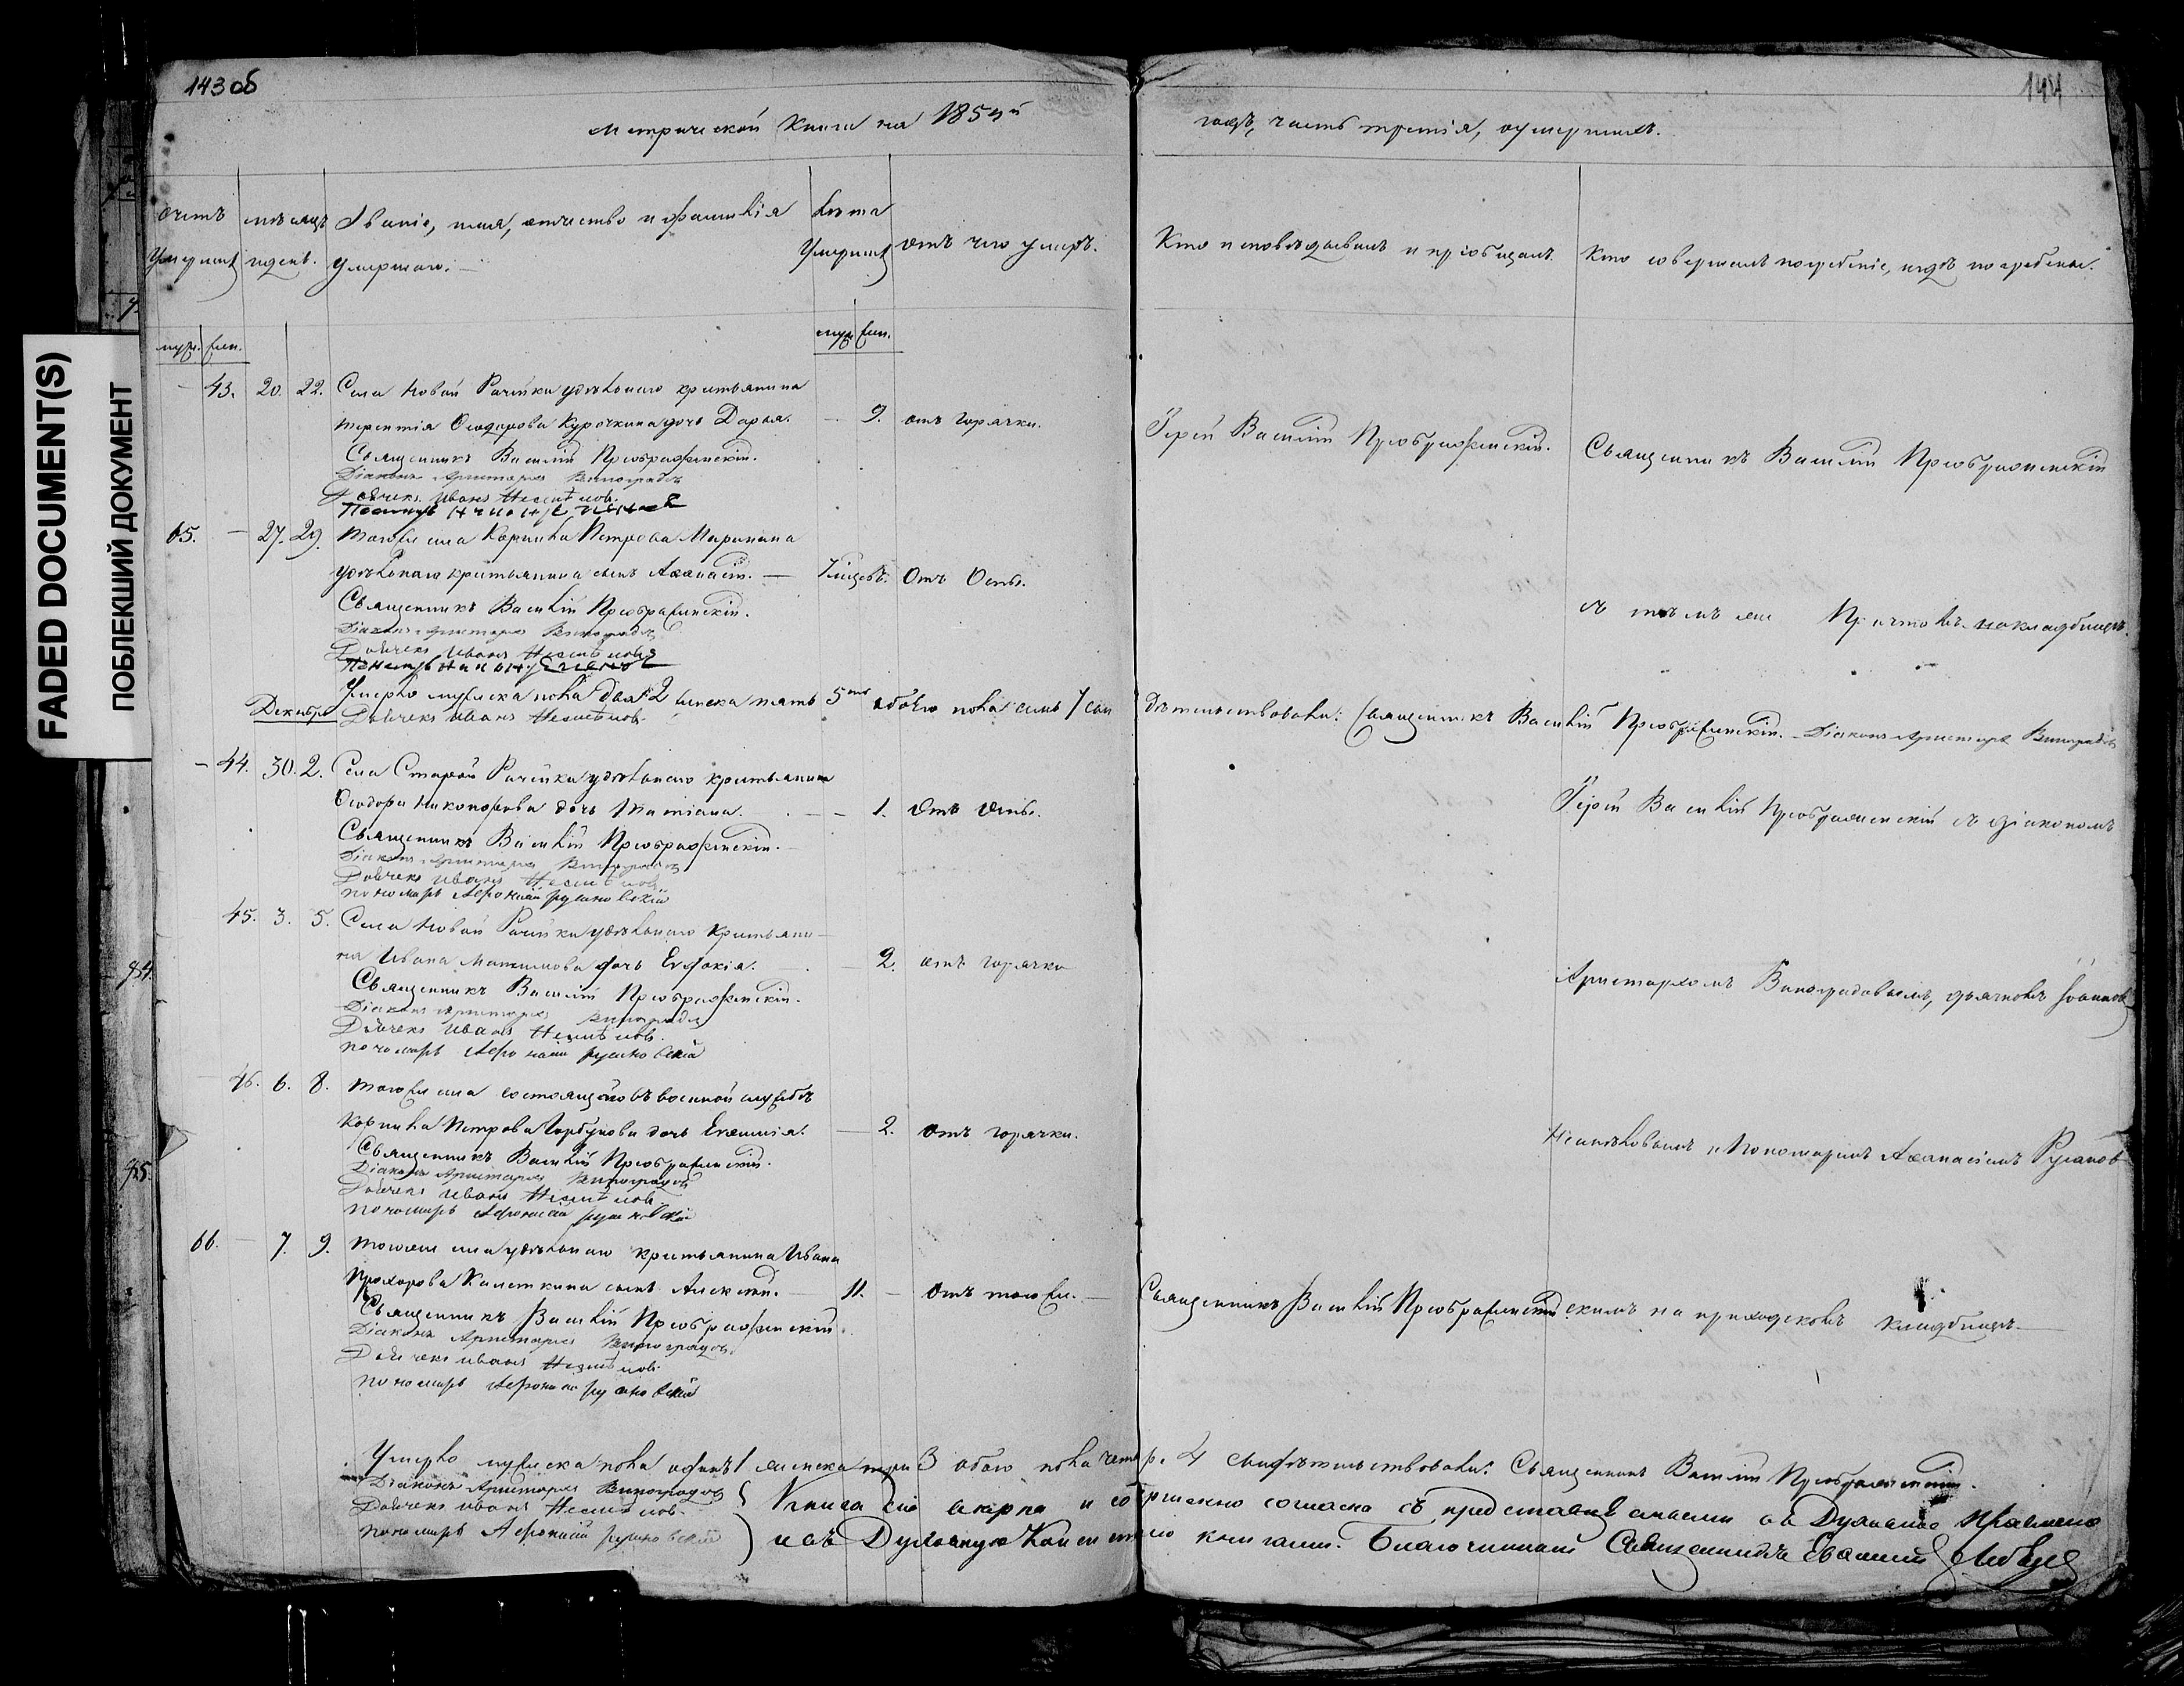 143 об
144
Метрической книги на 1854й
годъ, часть третія, о умершихъ.
Счетъ умершихъ
мѣсяцъ и день.
Званіе, имя, отчество и фамилія
умершаго. —
Лѣта
умершихъ
отъ чего умеръ.
Кто исповѣдывалъ и пріобщалъ.
Кто совершалъ погребеніе, и гдѣ погребены.
муж. жен.
муж. жен.
— 43. 20. 22. Села Новой Рачейки удѣльнаго крестьянина
Терентія Ѳеодорова Курочкина дочь Дарья. — 9. отъ горячки.
Іерей Василій Преображенскій.
Священникъ Василій Преображенскій
Священникъ Василій Преображенскій.
Діаконъ Аристархъ Виноградовъ
Дьячекъ Иванъ Несмѣловъ.
65. — 27. 29. Тогоже села Корнила Петрова
удѣльнаго крестьянина сынъ Аѳанасій. — 7 мѣсец. Отъ Оспы.
Священникъ Василій Преображенскій.
съ тѣмъ же Причтомъ на кладбищѣ.
Діаконъ Аристархъ Виноградовъ
Дьячекъ Иванъ Несмѣловъ
Умерло мужеска пола два 2 женска пять 5 обоего пола семь 7 сви
дѣтельствовали: Священникъ Василій Преображенскій. Діаконъ Аристархъ Виноградовъ
Декабрь Дьячекъ Иванъ Несмѣловъ.
— 44. 30. 2. Села Старой Рачейки удѣльнаго крестьянина
Ѳеодора Никифорова дочь Татіана. — 1. Отъ Оспы.
Іерей Василій Преображенскій съ діакономъ
Священникъ Василій Преображенскій.
Діаконъ Аристархъ Виноградовъ
Дьячекъ Иванъ Несмѣловъ
пономарь Афонасій Румовскій
45. 3. 5. Села Новой Рачейки удѣльнаго крестьяни-
на Ивана Максимова дочь Евдокія. — 2. отъ горячки
Аристархомъ Виноградовымъ, дьячкомъ Іоанномъ
Священникъ Василій Преображенскій.
Діаконъ Аристархъ Виноградовъ
Дьячекъ Иванъ Несмѣловъ.
пономарь Афонасій Румовскій
46. 6. 8. Тогоже села состоящаго въ военной службѣ
Корнила Петрова Горбунова дочь Евѳимія. — 2. отъ горячки.
Несмѣловымъ и Пономаремъ Аѳанасіемъ Румов
Священникъ Василій Преображенскій.
Діаконъ Аристархъ Виноградовъ
Дьячекъ Иванъ Несмѣловъ
пономарь Афонасій Румовскій
66. — 7. 9. Тогоже села удѣльнаго крестьянина Ивана
Прохорова Калеткина сынъ Алексѣй. — 11. — Отъ тогоже. —
Священникъ Василій Преображенскій
скимъ на приходскомъ кладбищѣ. —
Священникъ Василій Преображенскій.
Діаконъ Аристархъ Виноградовъ.
Дьячекъ Иванъ Несмѣловъ.
пономарь Афонасій Румовскій
Умерло мужеска пола одинъ 1 женска три 3 обоего пола четыр. 4 свидѣтельствовали: Священникъ Василій Преображенскій.
Діаконъ Аристархъ Виноградовъ
Дьячекъ Иванъ Несмѣловъ.
пономарь Афонасій Румовскій
Книга сія вѣрна и совершенно согласна съ представленными въ Духовное Правленіе
и въ Духовную Консисторію книгами. Благочинный Священникъ Евѳимій
FADED DOCUMENT(S)
ПОБЛЕКШИЙ ДОКУМЕНТ